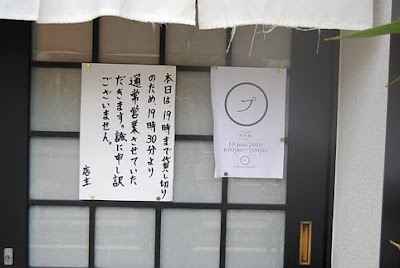 本日は19時まで貸し切り
のため、19時30分より
通常営業させていた
だきます。誠に申し訳
ございません。
店主
プ
19 june 2010
4:00pm〜7:00pm